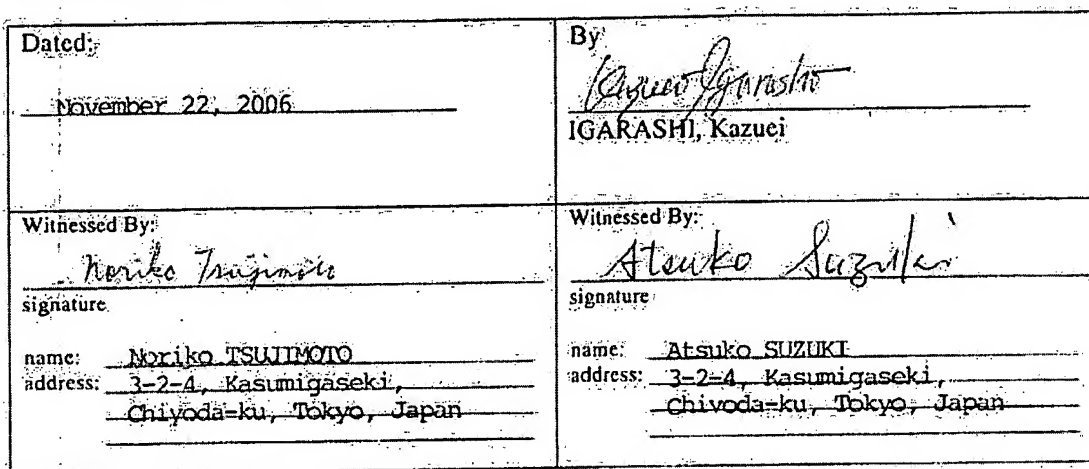 Dated:
November 22, 2006
By
Kazuei Igarashi
IGARASHI, Kazuei
Witnessed By:
Noriko Tsujimoto
signature
name: Noriko TSUJIMOTO
address: 3-2-4, Kasumigaseki,
Chiyoda-ku, Tokyo, Japan
Witnessed By:
Atsuko Suzuki
signature
name: Atsuko SUZUKI
address: 3-2-4, Kasumigaseki,
Chiyoda-ku, Tokyo, Japan